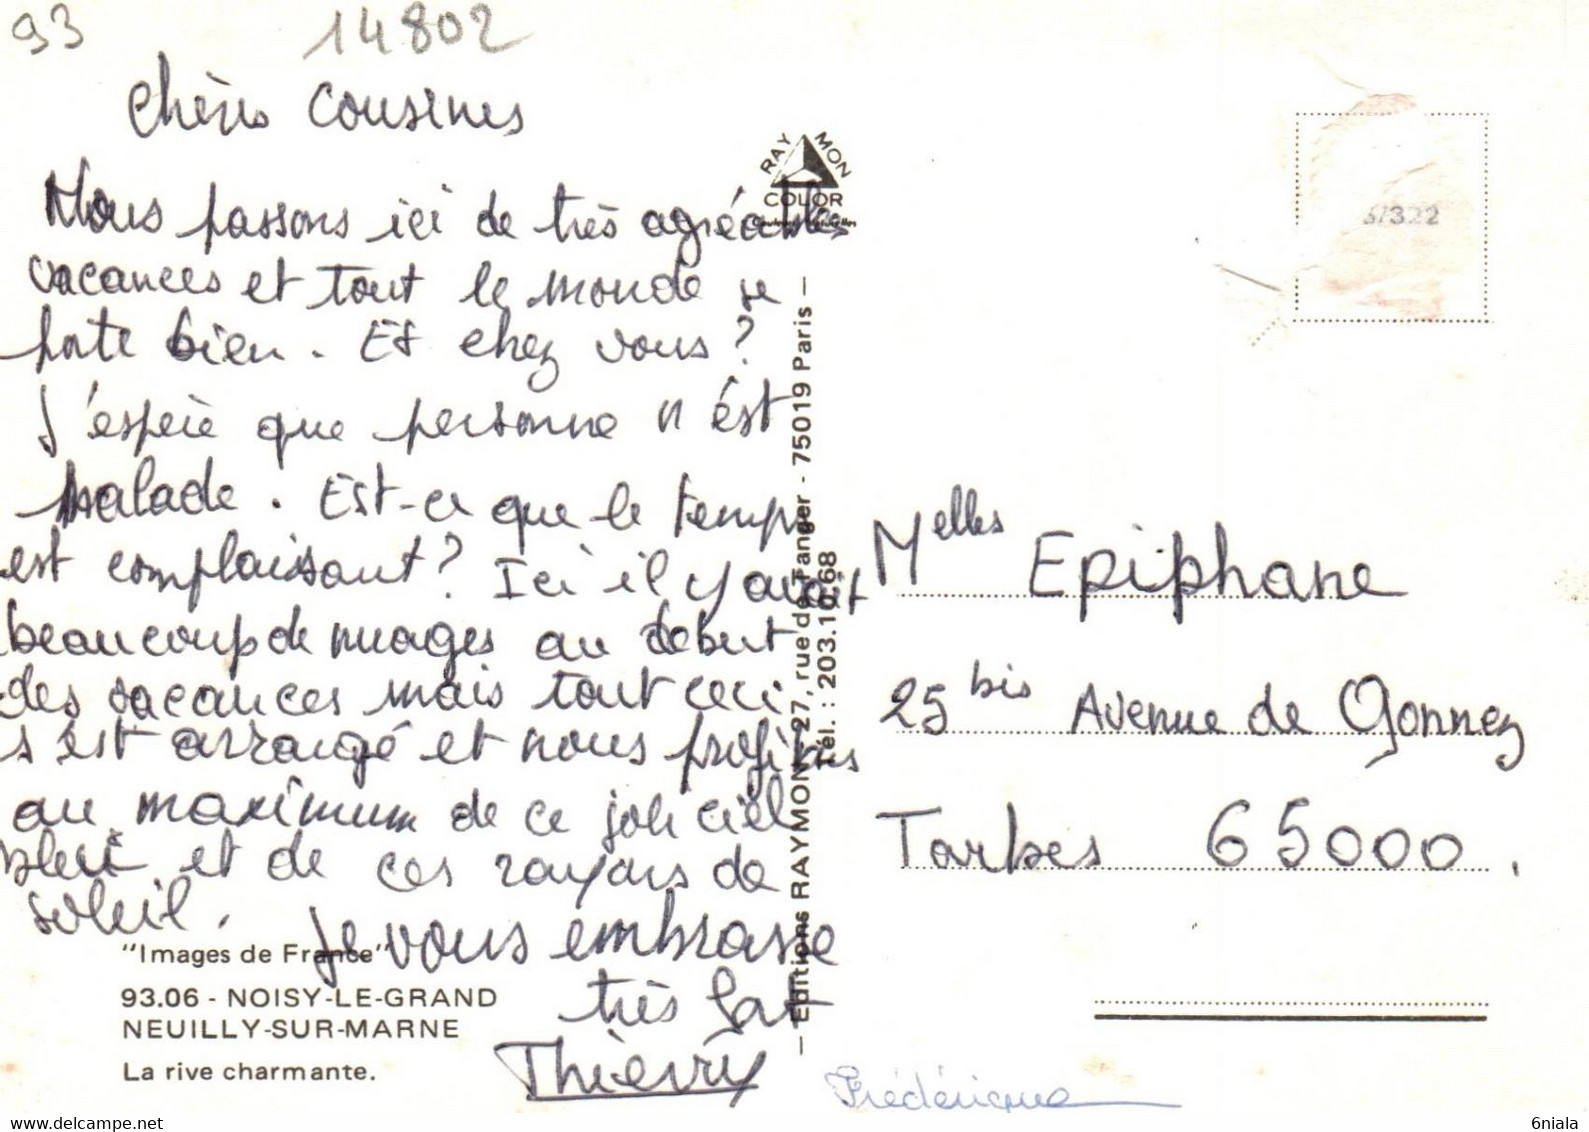 93 14802
Chères Cousines
RAYMON
COLOR
Nous passons ici de très agréables
vacances et tout le monde se
porte bien. Et chez vous ?
J'espère que personne n'est
malade. Est-ce que le temps
est complaisant ? Ici il y avait
beaucoup de nuages au début
des vacances mais tout ceci
s'est arrangé et nous profitons
au maximum de ce joli ciel
bleu et de ces rayons de
soleil.
Je vous embrasse
très fort
Thierry
Frédérique
"Images de France"
93.06 - NOISY-LE-GRAND
NEUILLY-SUR-MARNE
La rive charmante.
— Editions RAYMON - 27, rue de Tanger - 75019 Paris —
Tél. : 203.10.68
67322
Melles Epiphane
25 bis Avenue de Gonnez
Tarbes 65000.
www.delcampe.net
6niala